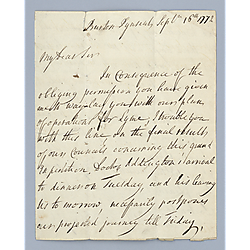 Burton Pynsent, Septr 16th 1772
My Dear Sir
In Consequence of the
obliging permission you have given
me to way-lay you with our plan
of operation for Lyme, I trouble you
with this line on the final results
of our Councils concerning this grand
Expedition. Doctor Addington's arrival
to dinner on Tuesday, and his leaving
us to morrow, necessarily postpones
our projected journey till Friday,